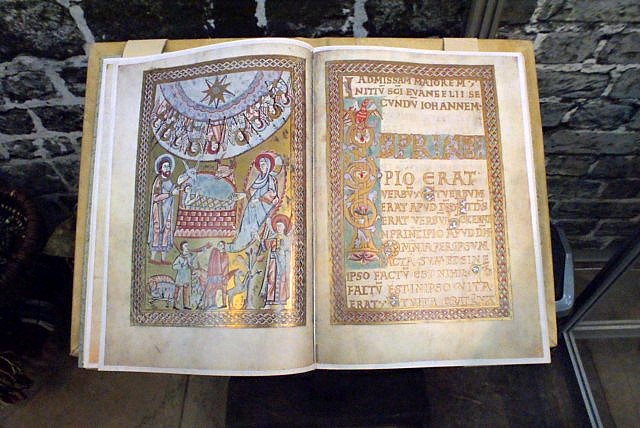 AD MISSAM MAIOREM
INITIU SCI EVANGELII SE
CUNDU IOHANNEM
PIO ERAT
VERBU
ERAT APUD
ERAT VERBU
IN PRINCIPIO APUD DM
OMNIA PER IPSUM
FACTA SUNT ET SINE
IPSO FACTU EST NIHIL
FACTU EST IN IPSO VITA
ERAT ET VITA ERAT LUX